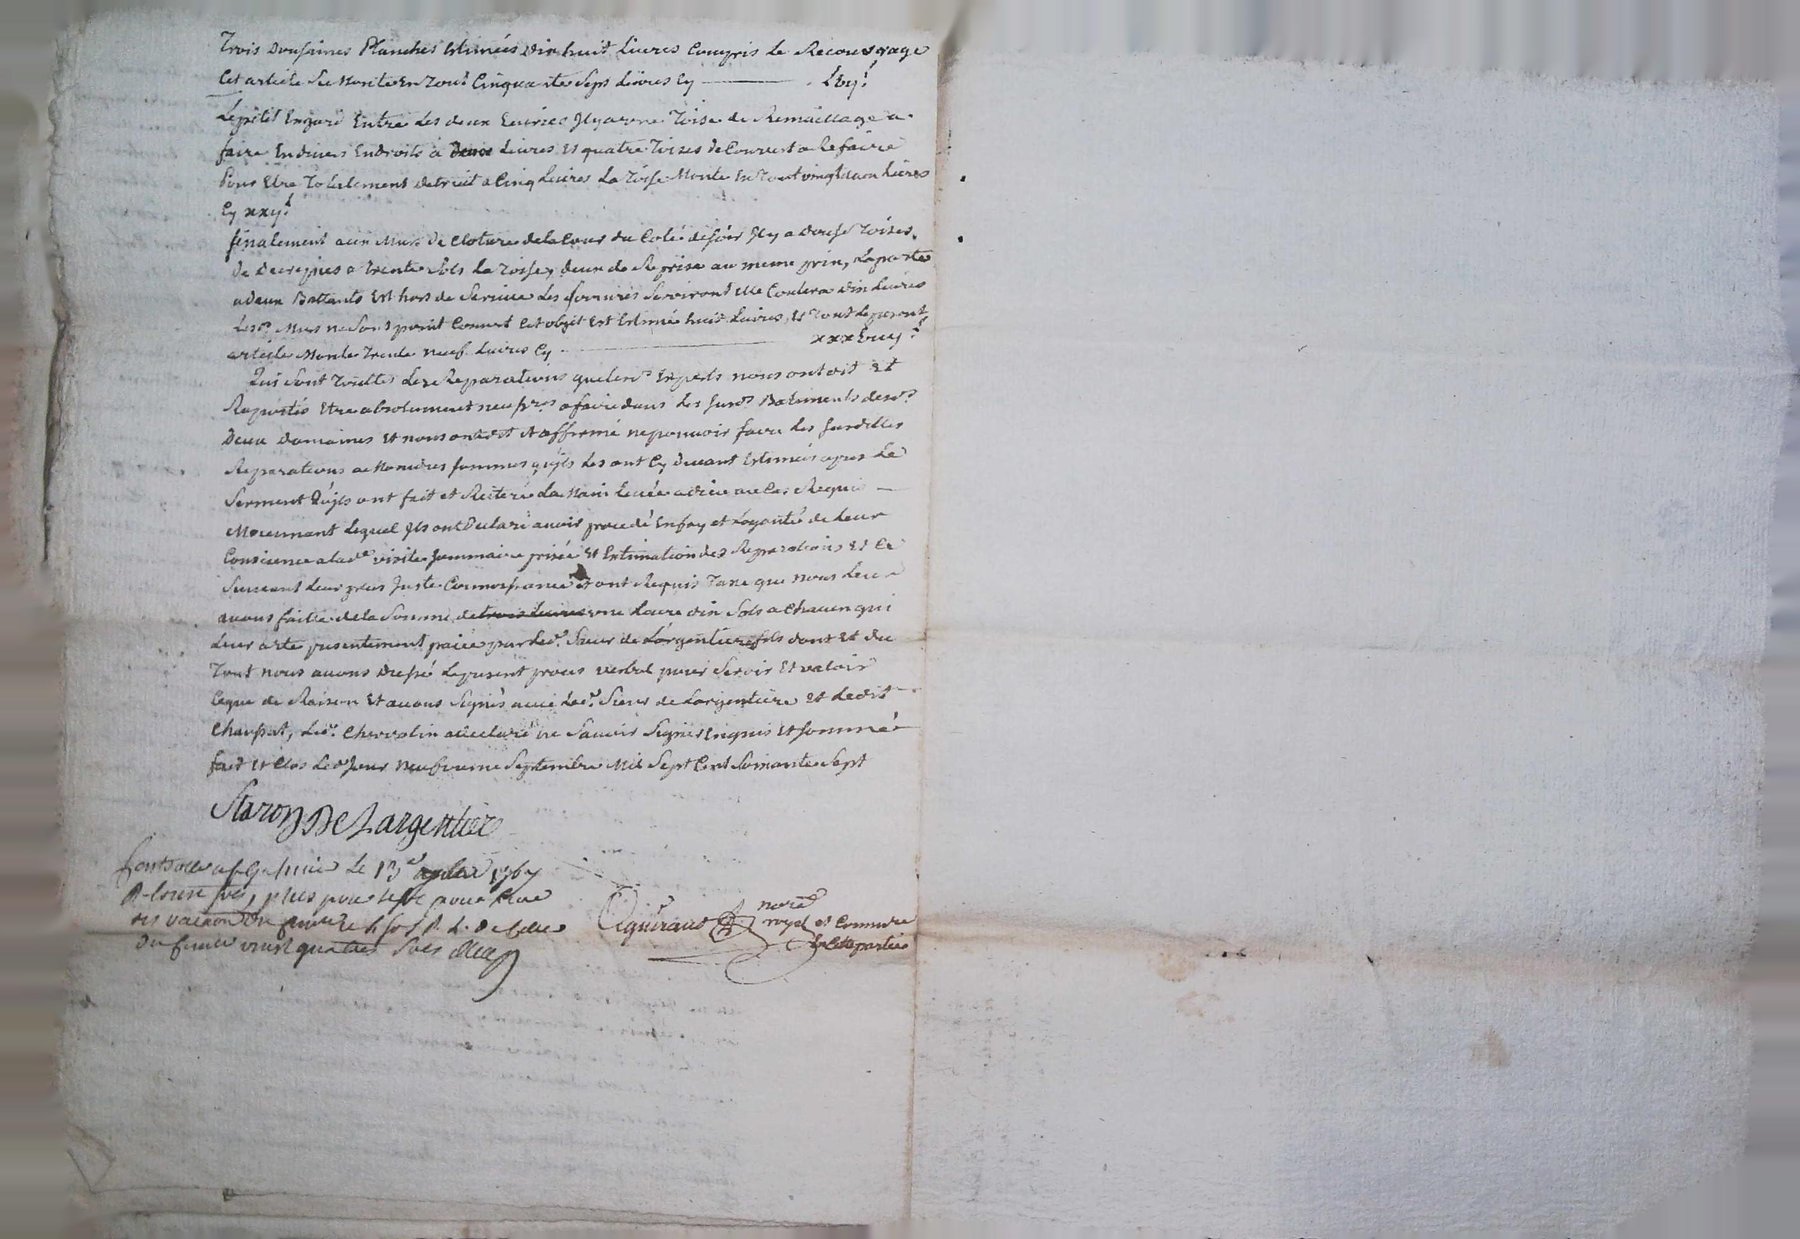 Trois Dousaines Planches Estimées dix huit Livres Compris le
Cet article Se Monte En Tout Cinquante Sept Livres Cy Lvij.l
Le petit Engard Entre Les deux Ecuries Il y a une Toise de Remaillage a
faire En divers Endroits à Deux Livres Et quatre Toises de Couvert a Refaire
Pour Etre Totalement detruit a Cinq Livres La Toise Monte En Tout vingt deux Livres
Cy xxij.l
finalement aux Murs De Cloture de la Cour du Coté de soir Il y a Douse Toises
De a trente Sols La Toise, deux de Reprise au meme prix, La porte
a deux Battants Est hors de Service Les ferrures Serviront Elle Coutera dix Livres
Lesd. Murs ne Sont point Couvert Cet objet Est Estimé huit Livres, Et Tout Le present
article Monte Trente neuf Livres Cy xxxviiij.l
Qui Sont Toutes Les Reparations que lesd. Experts nous ont dit Et
Raporté Etre absolument necess.res a faire dans Les susd. Batiments desd.
Deux Domaines Et nous ont dit Et affirmé ne pouvoir faire Les susdittes
Reparations a Moindres sommes qu'ils Les ont Cy devant Estimées apres Le
Serment Qu'ils ont fait et Reiteré La Main Levée a dieu au Cas Requis
Moyennant Lequel Ils ont Declaré avoir procedé En foy et Loyauté de Leur
Conscience a lad.e visite sommaire prisée Et Estimation des Reparations Et Ce
Suivant Leur plus Juste Connoissance Et ont Requis Taxe que nous Leur
avons faitte de la Somme de trois Livres une Livre dix Sols a Chacun qui
Leur a été presentement paiée par Led. Sieur de Largentiere fils dont Et du
Tout nous avons Dressé Le present proces verbal pour Servir Et valoir
Ce que de Raison Et avons Signés avec Led. Sieur de Largentiere Et Ledit
Chaussat, Led. Chervolin a declaré ne Savoir Signer Enquis Et sommé
fait Et Clos Led. Jour neufvieme Septembre Mil Sept Cent Soixante Sept
Staron De Largentiere
le 13e 1767
vingt quatre Sols
not.re
royal et Commre
En Cette partie